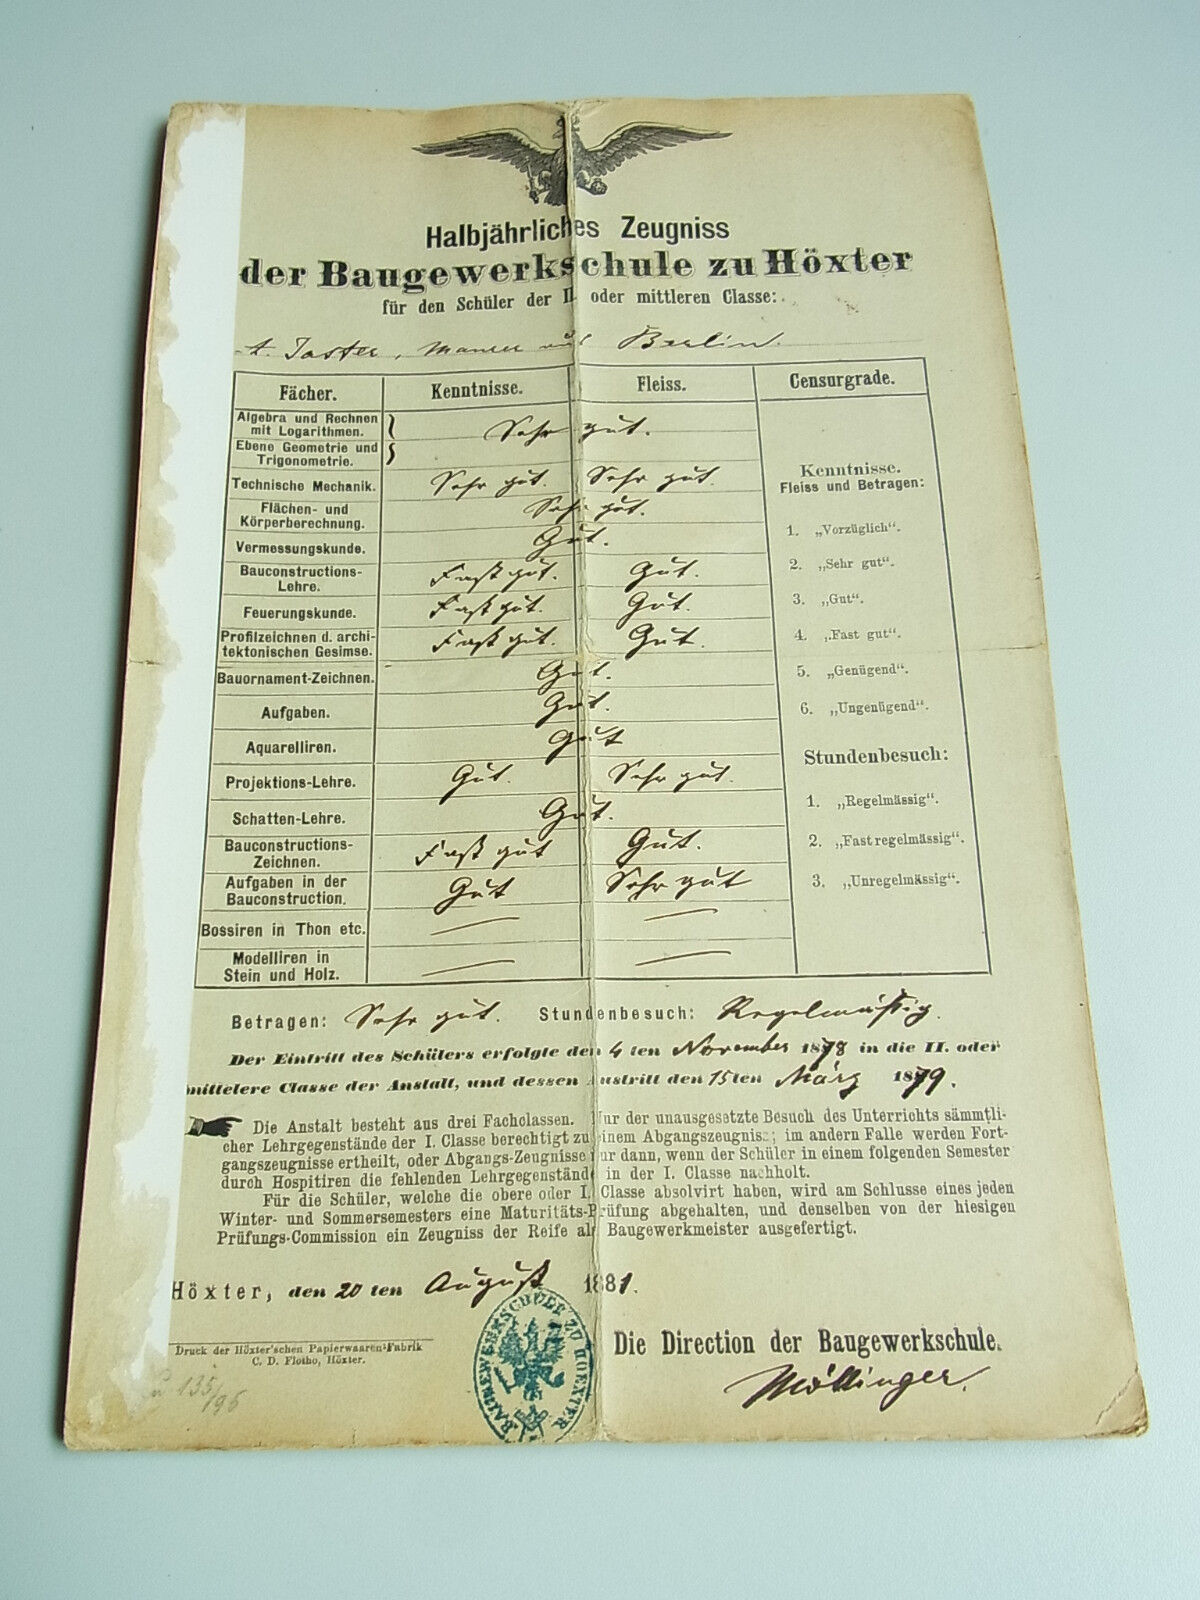 Halbjährliches Zeugniss
der Baugewerkschule zu Höxter
für den Schüler der II. oder mittleren Classe:
A. Jaster, Maurer aus Berlin.
Fächer. Kenntnisse. Fleiss. Censurgrade.
Algebra und Rechnen
mit Logarithmen.
Sehr gut.
Ebene Geometrie und
Trigonometrie.
Technische Mechanik. Sehr gut. Sehr gut.
Flächen- und
Körperberechnung. Sehr gut.
Vermessungskunde. Gut.
Bauconstructions-
Lehre. Fast gut. Gut.
Feuerungskunde. Fast gut. Gut.
Profilzeichnen d. archi-
tektonischen Gesimse. Fast gut. Gut.
Bauornament-Zeichnen. Gut.
Aufgaben. Gut.
Aquarelliren. Gut
Projektions-Lehre. Gut. Sehr gut.
Schatten-Lehre. Gut.
Bauconstructions-
Zeichnen. Fast gut Gut.
Aufgaben in der
Bauconstruction. Gut Sehr gut
Bossiren in Thon etc. — —
Modelliren in
Stein und Holz. — —
Kenntnisse.
Fleiss und Betragen:
1. „Vorzüglich“.
2. „Sehr gut“.
3. „Gut“.
4. „Fast gut“.
5. „Genügend“.
6. „Ungenügend“.
Stundenbesuch:
1. „Regelmässig“.
2. „Fast regelmässig“.
3. „Unregelmässig“.
Betragen: Sehr gut. Stundenbesuch: Regelmäßig.
Der Eintritt des Schülers erfolgte den 4 ten November 1878 in die II. oder
mittelere Classe der Anstalt, und dessen Austritt den 15ten März 1879.
Die Anstalt besteht aus drei Fachclassen. Nur der unausgesetzte Besuch des Unterrichts sämmtli-
cher Lehrgegenstände der I. Classe berechtigt zu einem Abgangszeugniss; im andern Falle werden Fort-
gangszeugnisse ertheilt, oder Abgangs-Zeugnisse nur dann, wenn der Schüler in einem folgenden Semester
durch Hospitiren die fehlenden Lehrgegenstände in der I. Classe nachholt.
Für die Schüler, welche die obere oder I. Classe absolvirt haben, wird am Schlusse eines jeden
Winter- und Sommersemesters eine Maturitäts-Prüfung abgehalten, und denselben von der hiesigen
Prüfungs-Commission ein Zeugniss der Reife als Baugewerkmeister ausgefertigt.
Höxter, den 20 ten August 1881.
Die Direction der Baugewerkschule.
Möllinger.
BAUGEWERKSCHULE ZU HOEXTER
Druck der Höxter'schen Papierwaaren-Fabrik
C. D. Flotho, Höxter.
135/96